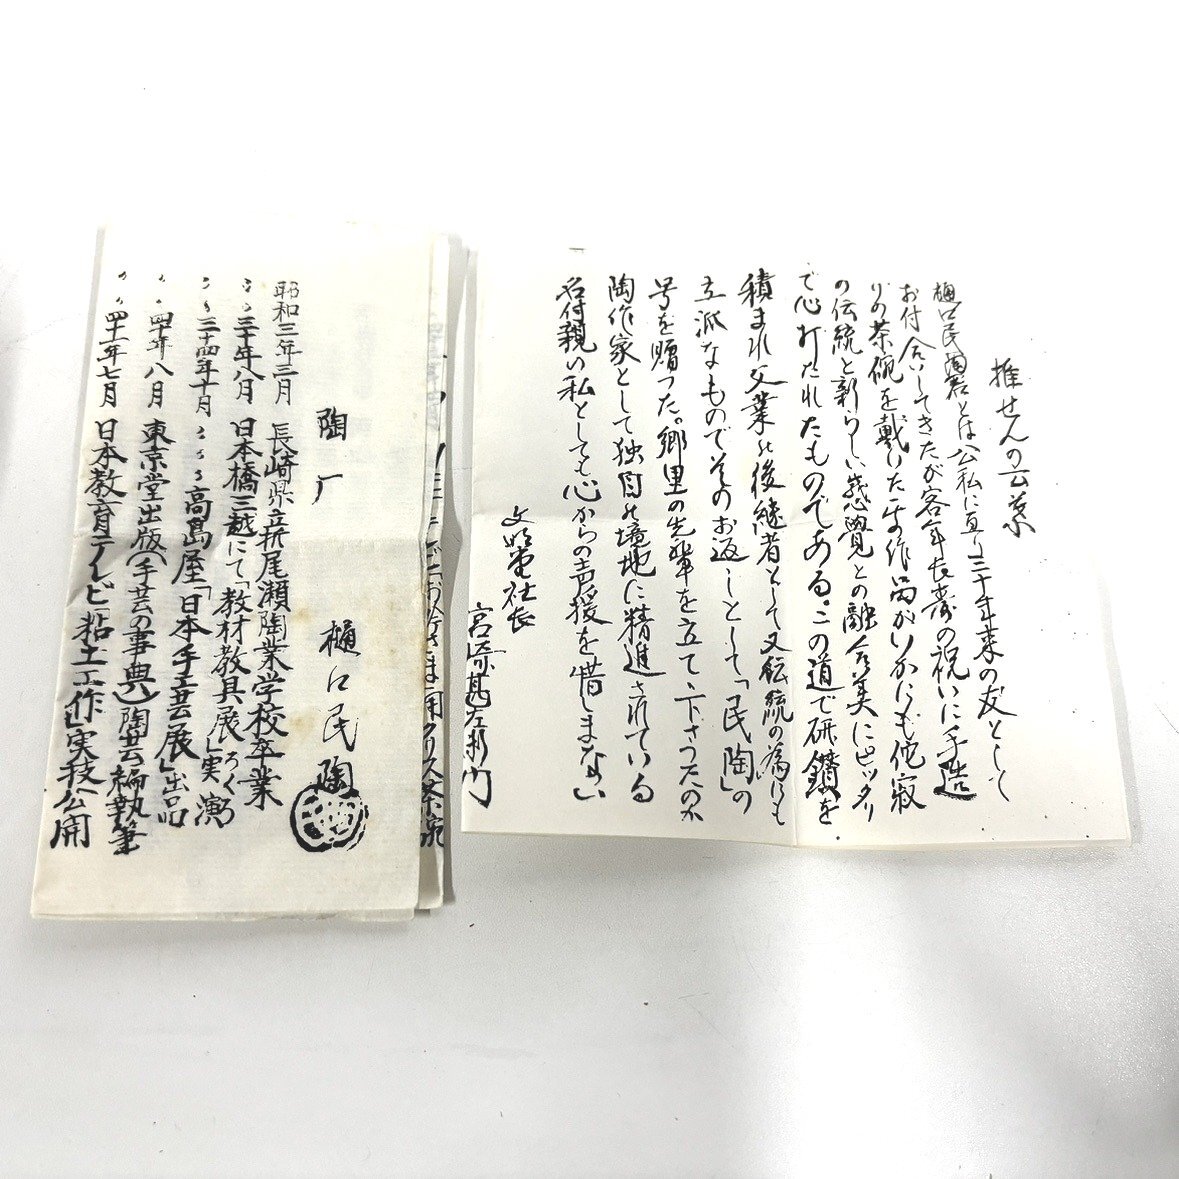 推せんの言葉
樋口民陶君とは公私に亘り三十年来の友として
お付合いしてきたが客年長寿の祝いに手造
りの茶碗を戴いたその作品がいかにも侘寂
の伝統と新らしい感覚との融合美にピッタリ
で心打たれたものである。この道で研鑚を
積まれ父業の後継者として又伝統の為にも
立派なものでそのお返しとして「民陶」の
号を贈った。郷里の先輩を立て下さったのか
陶作家として独自の境地に精進されている
名付親の私としても心からの声援を惜しまない
文明堂社長
宮崎甚左衛門
陶厂 樋口民陶
昭和三年三月 長崎県立折尾瀬陶業学校卒業
〃〃三十年八月 日本橋三越にて「教材教具展」ろくろ実演
〃〃三十四年十月 〃〃〃高島屋「日本手芸展」出品
〃〃四十年八月 東京堂出版(手芸の事典)陶芸編執筆
〃〃四十一年七月 日本教育テレビ「粘土工作」実技公開